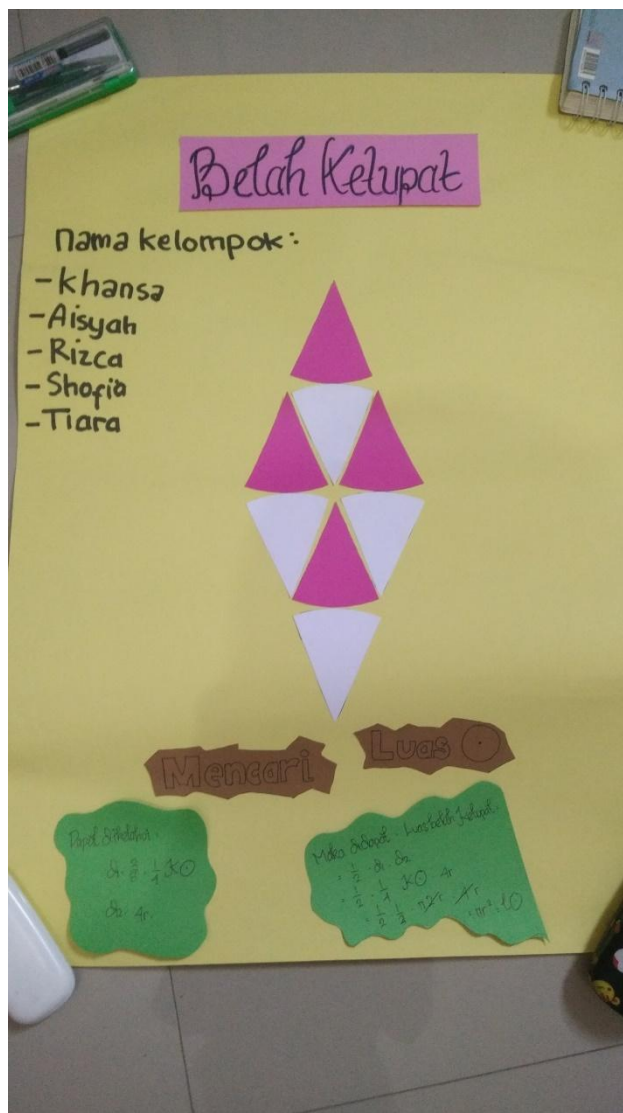 Belah Ketupat
nama kelompok:
- Khansa
- Aisyah
- Rizca
- Shofia
- Tiara
Mencari Luas ⊙
Dapat diketahui :
d1 = 2/8 = 1/4 K⊙
d2 = 4r
Maka didapat : Luas belah Ketupat.
= 1/2 . d1 . d2
= 1/2 . 1/4 K⊙ 4r
= 1/2 . 1/4 π2r 4r
= πr² = L⊙